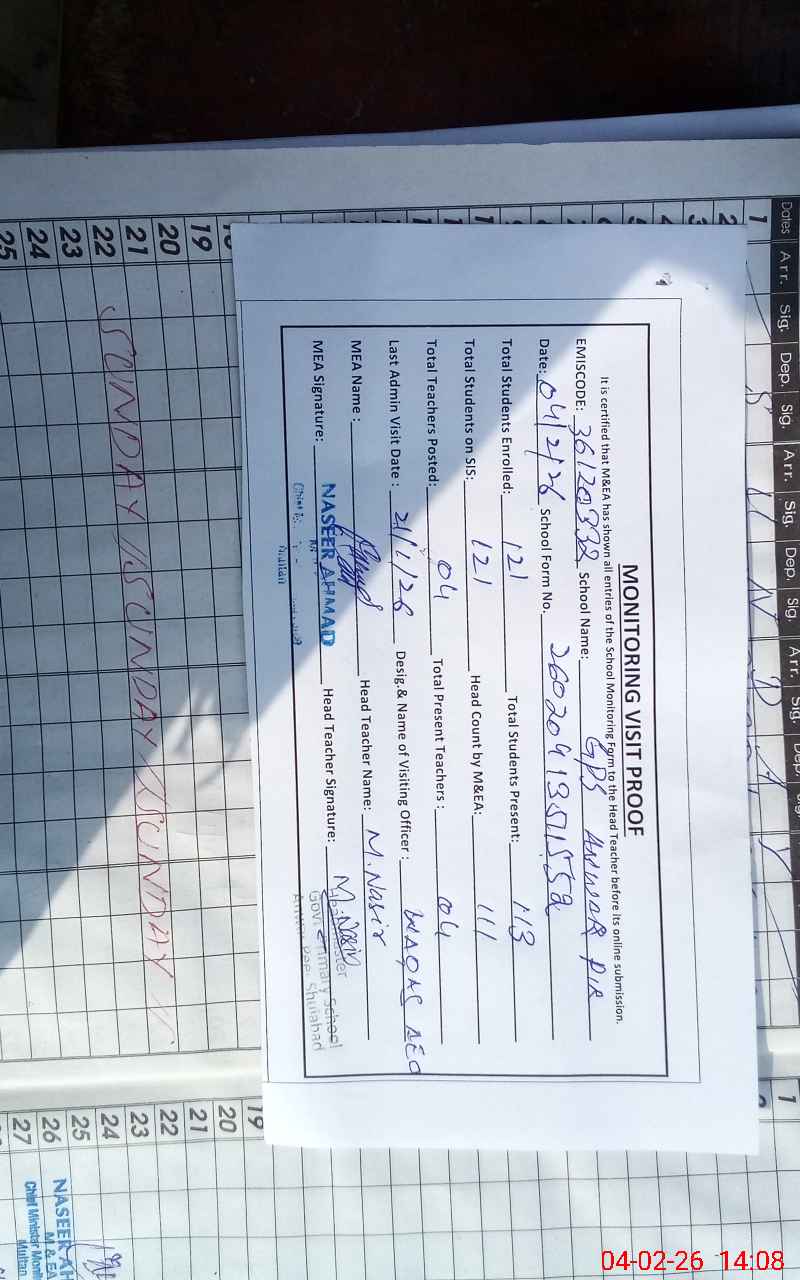 MONITORING VISIT PROOF
It is certified that M&EA has shown all entries of the School Monitoring Form to the Head Teacher before its online submission.
EMISCODE: 36120332 School Name: GPS ANWAR PIR
Date: 04/2/26 School Form No. 2602041351552
Total Students Enrolled: 121 Total Students Present: 113
Total Students on SIS: 121 Head Count by M&EA: 111
Total Teachers Posted: 04 Total Present Teachers : 04
Last Admin Visit Date : 21/1/26 Desig.& Name of Visiting Officer : WAQAS AEO
MEA Name : Head Teacher Name: M. Nasir
MEA Signature: NASEER AHMAD Head Teacher Signature: M. Nasir
Multan
Govt Primary School
Shujabad
Dates Arr. Sig. Dep. Sig. Arr. Sig. Dep. Sig. Arr. Sig. Dep.
1
2
3
4
5
6
19
20
21 SUNDAY SUNDAY SUNDAY
22
23
24
25
1
19
20
21
22
23
24
25
26
27
NASEER AH
M & EA
Chief Minister Monit
Multan
04-02-26 14:08